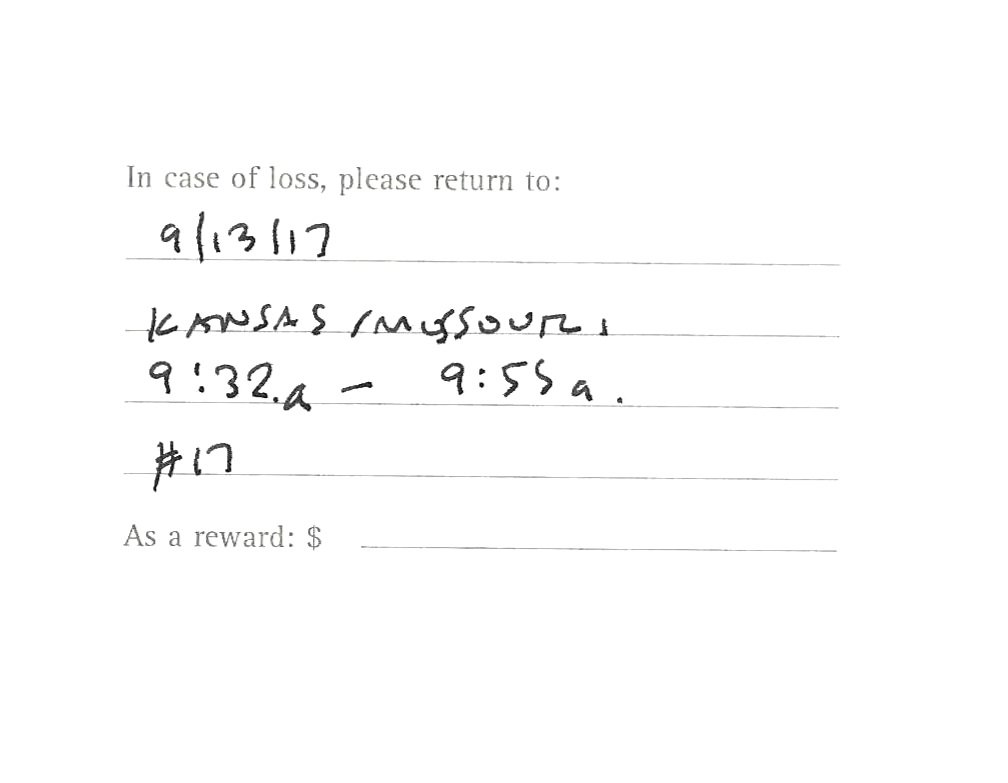 In case of loss, please return to:
9/13/17
KANSAS/MISSOURI
9:32.a - 9:55a.
#17
As a reward: $